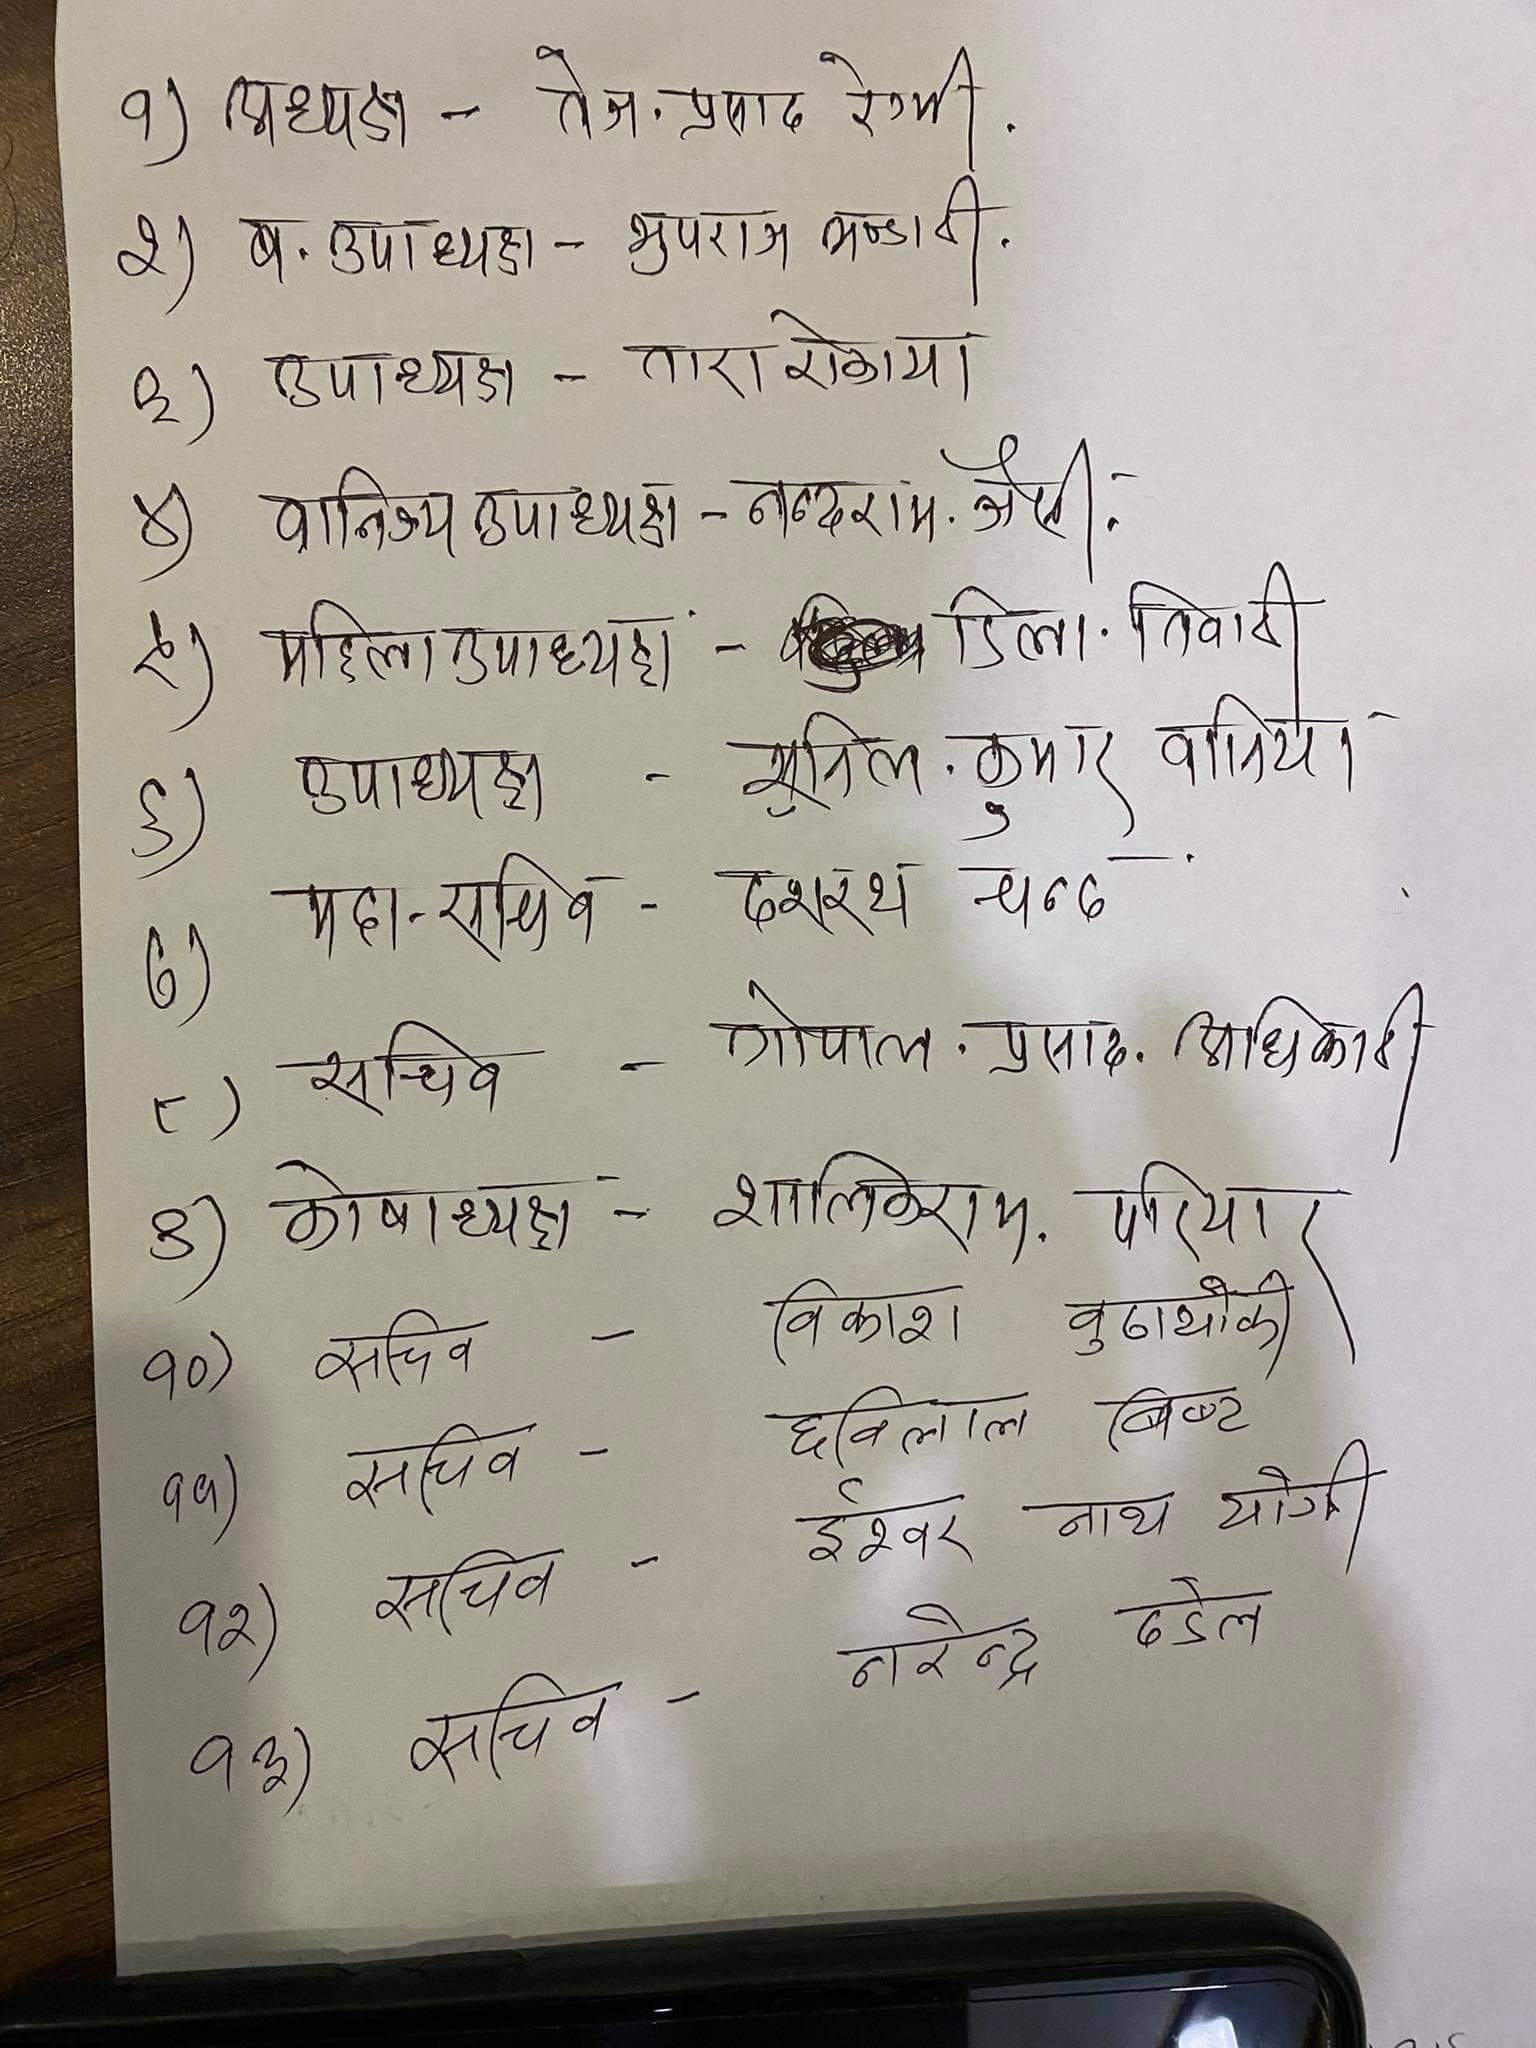 १) अध्यक्ष - तेज. प्रसाद रेग्मी.
२) ब. उपाध्यक्ष - भुपराज भण्डारी.
३) उपाध्यक्ष - तारा रोकाया
४) वानिज्य उपाध्यक्ष - नन्दराम. जैसी.
५) महिला उपाध्यक्ष - डिला. तिवारी
६) उपाध्यक्ष - सुनिल. कुमार वानिया
७) महा-सचिव - दशरथ चन्द
८) सचिव - गोपाल. प्रसाद. अधिकारी
९) कोषाध्यक्ष - शालिकराम. परियार
१०) सचिव - विकाश वुढाथोकी
११) सचिव - छविलाल बिष्ट
१२) सचिव - ईश्वर नाथ योगी
१३) सचिव - नरेन्द्र ढडेल